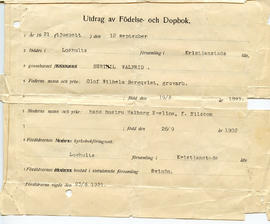 Utdrag av Födelse- och Dopbok.
År 19 21 (tjugoett) den 12 september
föddes i Loshults församling i Kristianstads län,
gossebarnet BERTIL VALFRID.
Faderns namn och yrke: Olof Wilhelm Bergqvist, grovarb.
född den 19/8 1893.
Moderns namn och yrke: hans hustru Valborg Evelina, f. Nilsson
född den 26/9 1902
Föräldrarnes kyrkobokföringsort:
Loshults församling i Kristianstads län.
Föräldrarnes bostad i sistnämnda församling
Föräldrarna vigda den 23/6 1921.